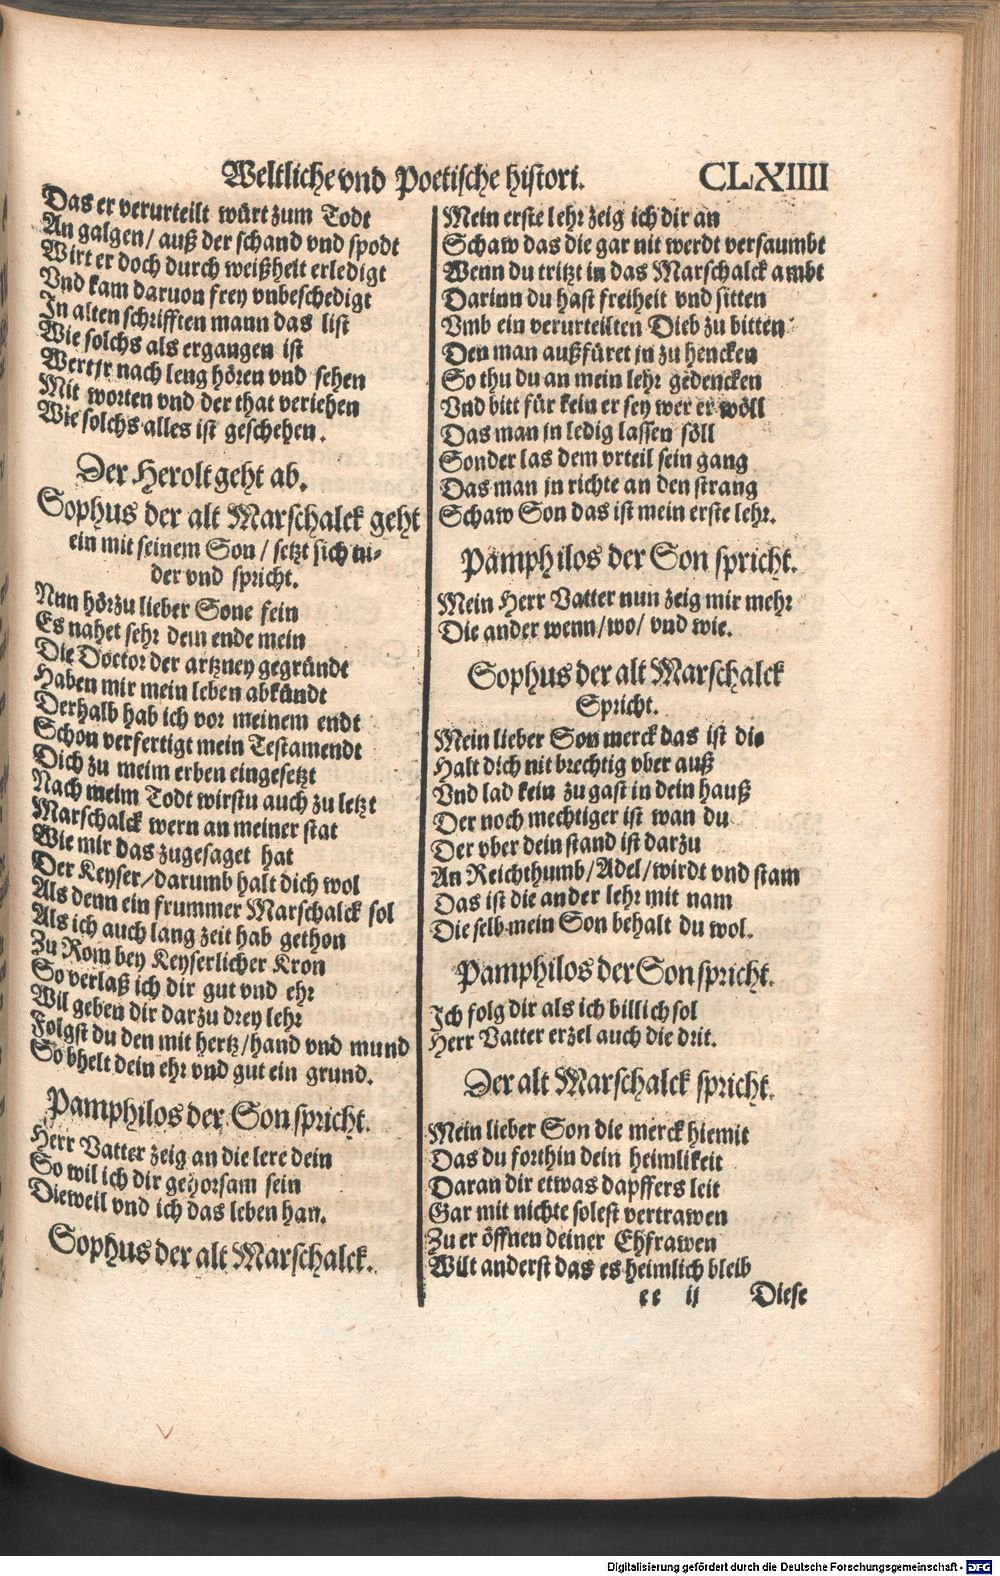 Weltliche vnd Poetische histori. CLXIIII
Das er verurteilt würt zum Todt
An galgen / auß der schand vnd spodt
Wirt er doch durch weißheit erledigt
Vnd kam daruon frey vnbeschedigt
In alten schrifften mann das list
Wie solchs als ergangen ist
Wert jr nach leng hören vnd sehen
Mit worten vnd der that veriehen
Wie solchs alles ist geschehen.
Der Herolt geht ab.
Sophus der alt Marschalck geht
ein mit seinem Son / setzt sich ni-
der vnd spricht.
Nun hör zu lieber Sone fein
Es nahet sehr dem ende mein
Die Doctor der artzney gegründt
Haben mir mein leben abkündt
Derhalb hab ich vor meinem endt
Schon verfertigt mein Testamendt
Dich zu meim erben eingesetzt
Nach meim Todt wirstu auch zu letzt
Marschalck wern an meiner stat
Wie mir das zugesaget hat
Der Keyser / darumb halt dich wol
Als denn ein frummer Marschalck sol
Als ich auch lang zeit hab gethon
Zu Rom bey Keyserlicher Kron
So verlaß ich dir gut vnd ehr
Wil geben dir darzu drey lehr
Folgst du den mit hertz / hand vnd mund
So bhelt dein ehr vnd gut ein grund.
Pamphilos der Son spricht.
Herr Vatter zeig an die lere dein
So wil ich dir gehorsam sein
Dieweil vnd ich das leben han.
Sophus der alt Marschalck.
Mein erste lehr zeig ich dir an
Schaw das die gar nit werdt versaumbt
Wenn du tritzt in das Marschalck ambt
Darinn du hast freiheit vnd sitten
Vmb ein verurteilten Dieb zu bitten
Den man außfüret jn zu hencken
So thu du an mein lehr gedencken
Vnd bitt für kein er sey wer er wöll
Das man jn ledig lassen söll
Sonder las dem vrteil sein gang
Das man jn richte an den strang
Schaw Son das ist mein erste lehr.
Pamphilos der Son spricht.
Mein Herr Vatter nun zeig mir mehr
Die ander wenn / wo / vnd wie.
Sophus der alt Marschalck
Spricht.
Mein lieber Son merck das ist die
Halt dich nit brechtig vber auß
Vnd lad kein zu gast in dein hauß
Der noch mechtiger ist wan du
Der vber dein stand ist darzu
An Reichthumb / Adel / wirdt vnd stam
Das ist die ander lehr mit nam
Die selb mein Son behalt du wol.
Pamphilos der Son spricht.
Ich folg dir als ich billich sol
Herr Vatter erzel auch die drit.
Der alt Marschalck spricht.
Mein lieber Son die merck hiemit
Das du forthin dein heimlikeit
Daran dir etwas dapffers leit
Gar mit nichte solest vertrawen
Zu er öffnen deiner Ehfrawen
Wilt anderst das es heimlich bleib
ee ij Diese
Digitalisierung gefördert durch die Deutsche Forschungsgemeinschaft - DFG